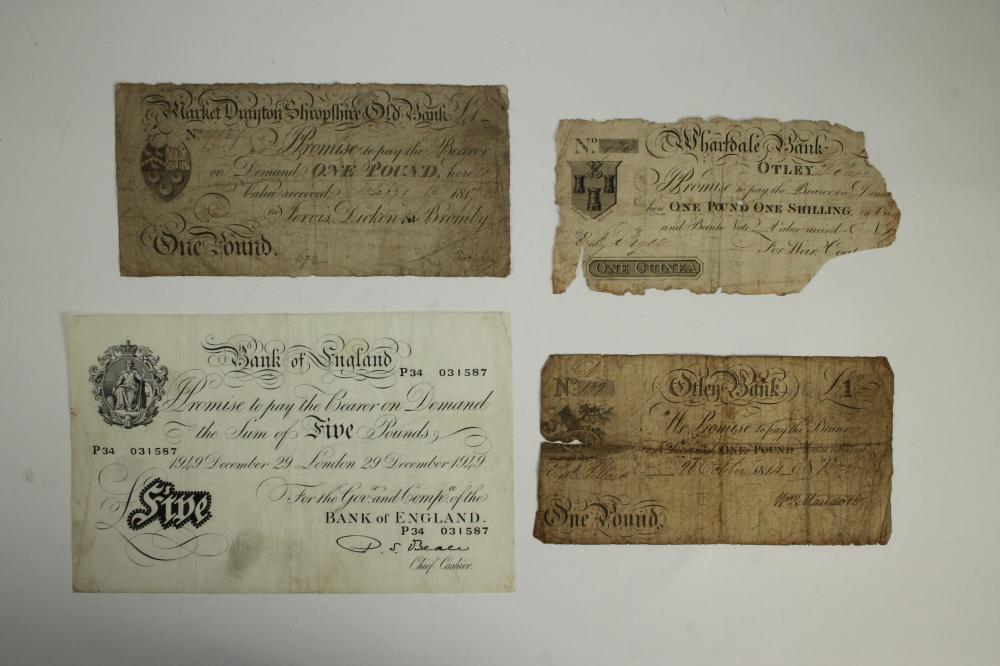 Market Drayton Shropshire Old Bank £1
No.
I Promise to pay the Bearer
on Demand ONE POUND, here
Value received
For Jervis, Dicken & Bromley
One Pound.
No.
Wharfdale Bank
OTLEY
I Promise to pay the Bearer on Dema
here ONE POUND ONE SHILLING, in
and Bank Note Value receiv'd
For Weir,
ONE GUINEA
Bank of England
P34 031587
I Promise to pay the Bearer on Demand
the Sum of Five Pounds
P34 031587
1949 December 29 London 29 December 1949
For the Govr. and Compa. of the
BANK of ENGLAND.
P34 031587
£Five
P. S. Beale
Chief Cashier.
No.
Otley Bank £1
We Promise to pay the Bearer
ONE POUND
October 1814
One Pound.